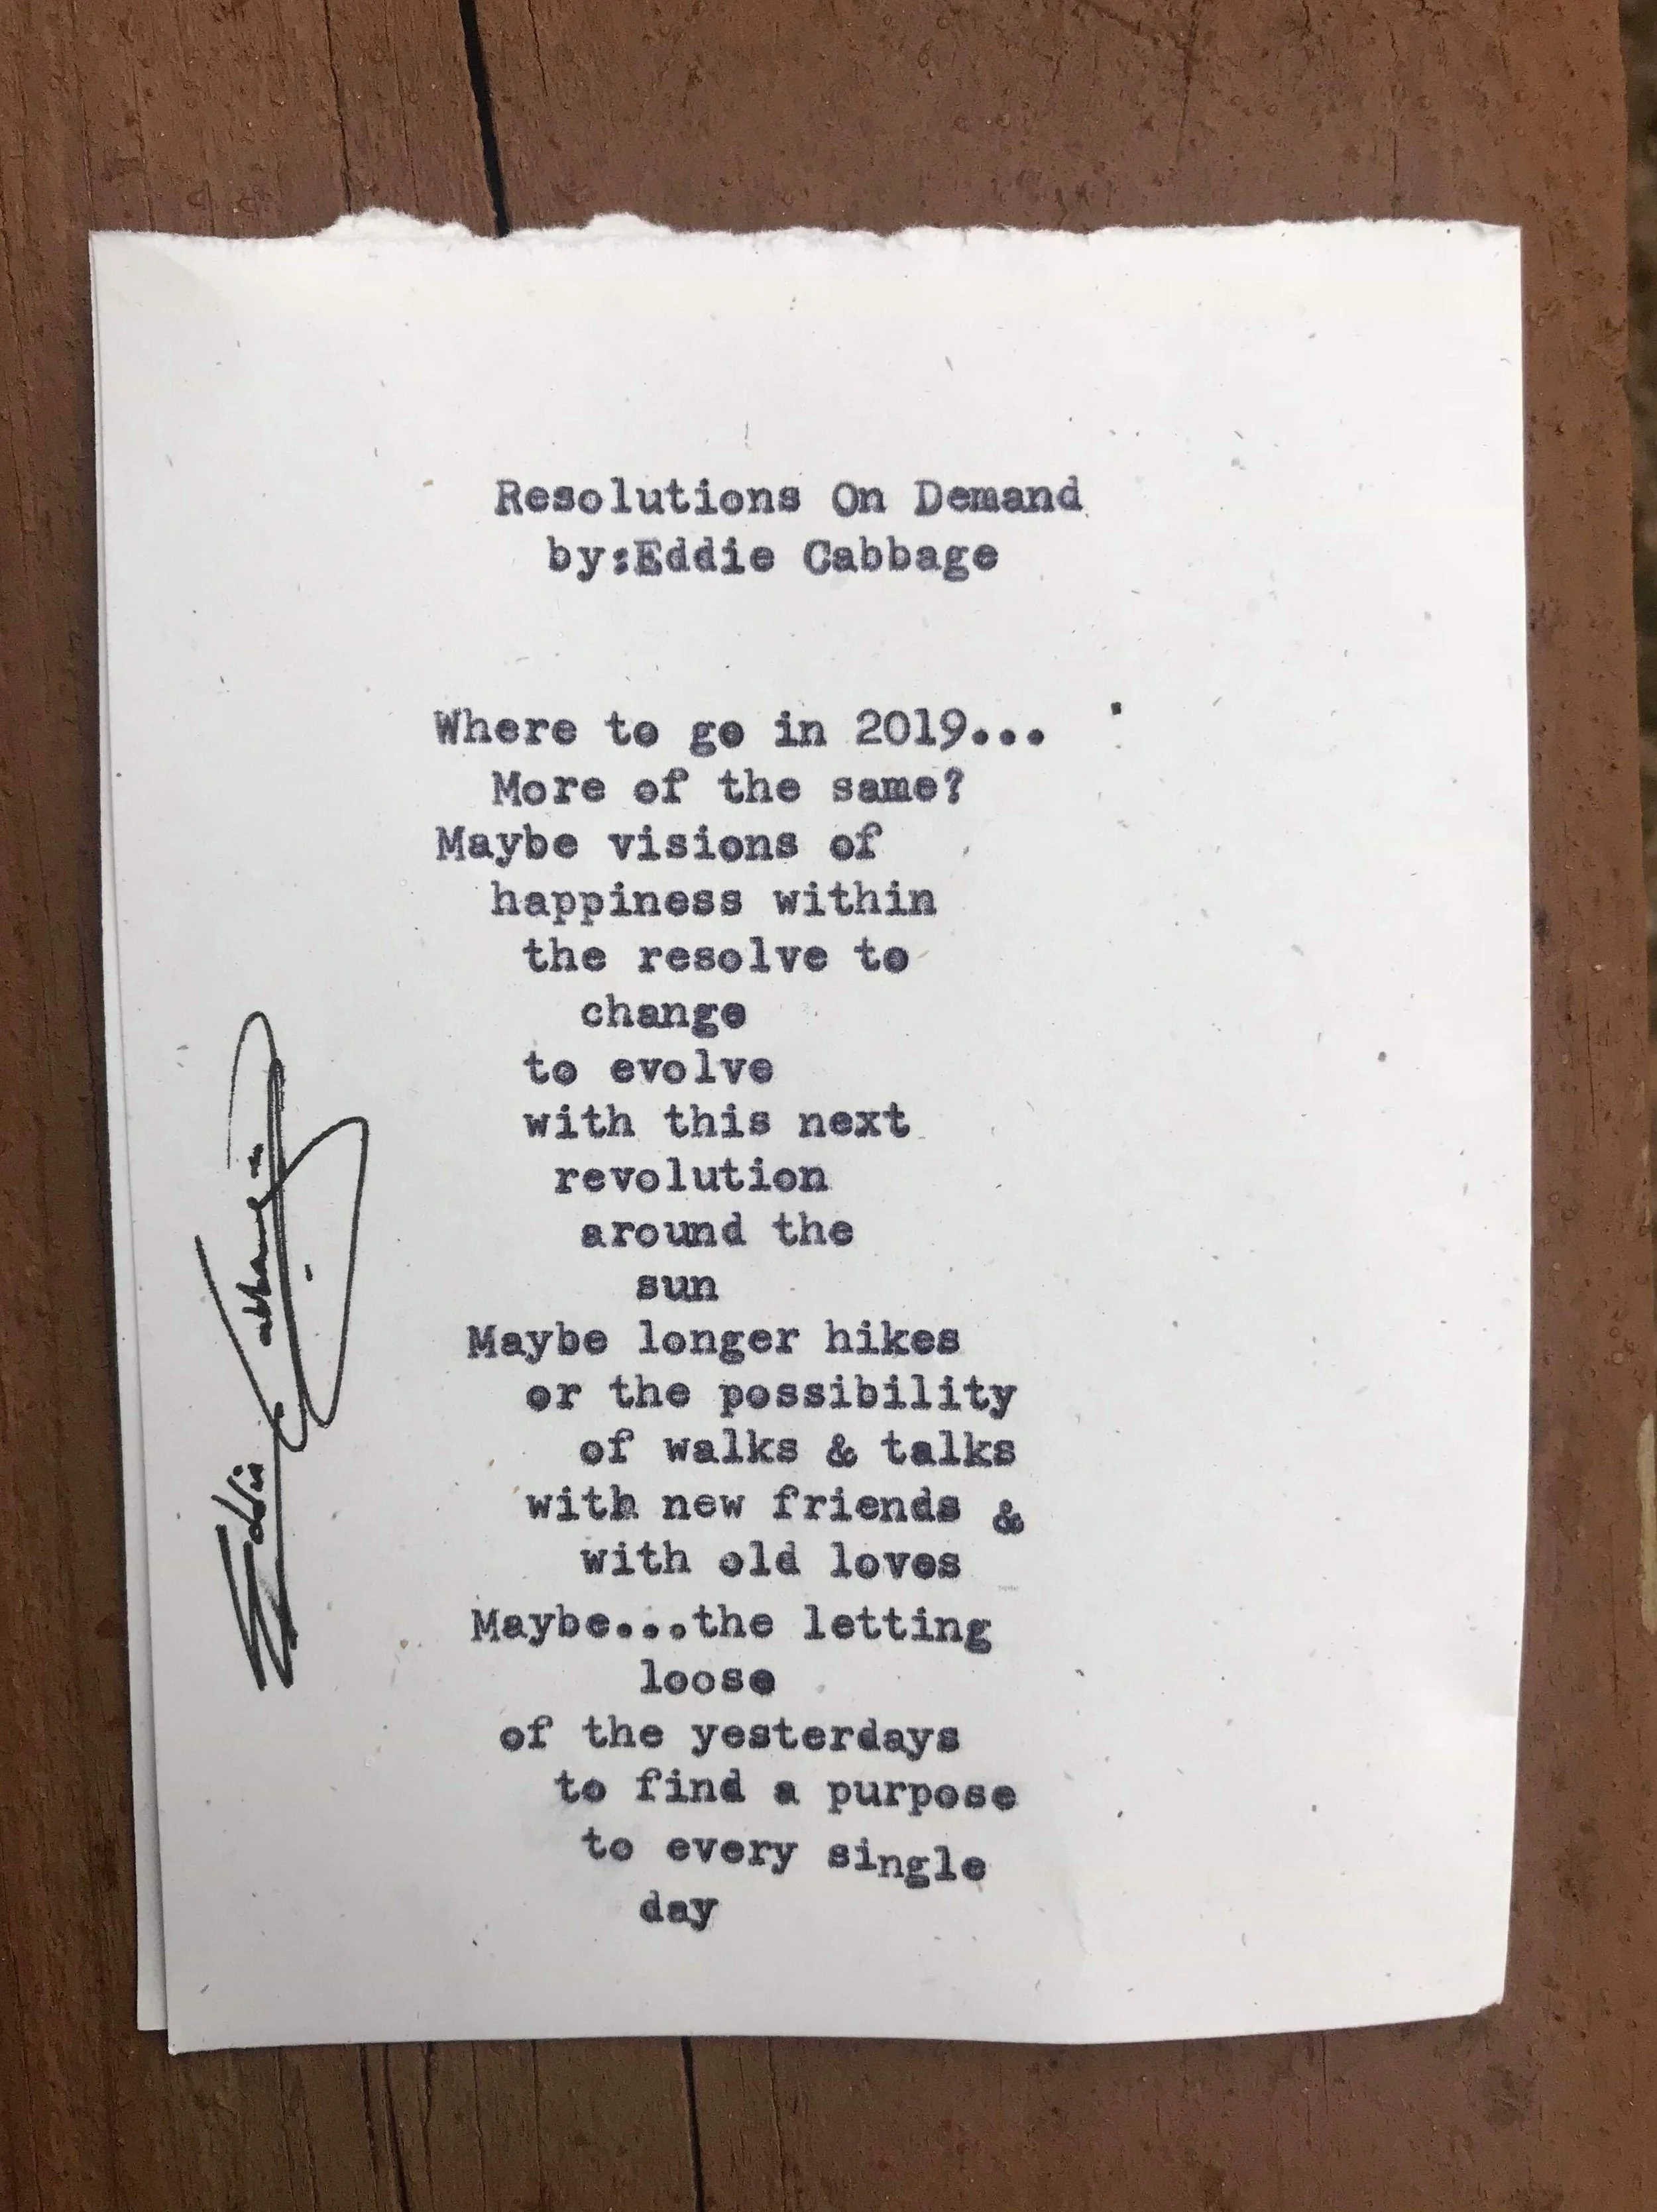 Resolutions On Demand
by:Eddie Cabbage
Where to go in 2019...
More of the same?
Maybe visions of
happiness within
the resolve to
change
to evolve
with this next
revolution
around the
sun
Maybe longer hikes
or the possibility
of walks & talks
with new friends &
with old loves
Maybe...the letting
loose
of the yesterdays
to find a purpose
to every single
day
Eddie Cabbage